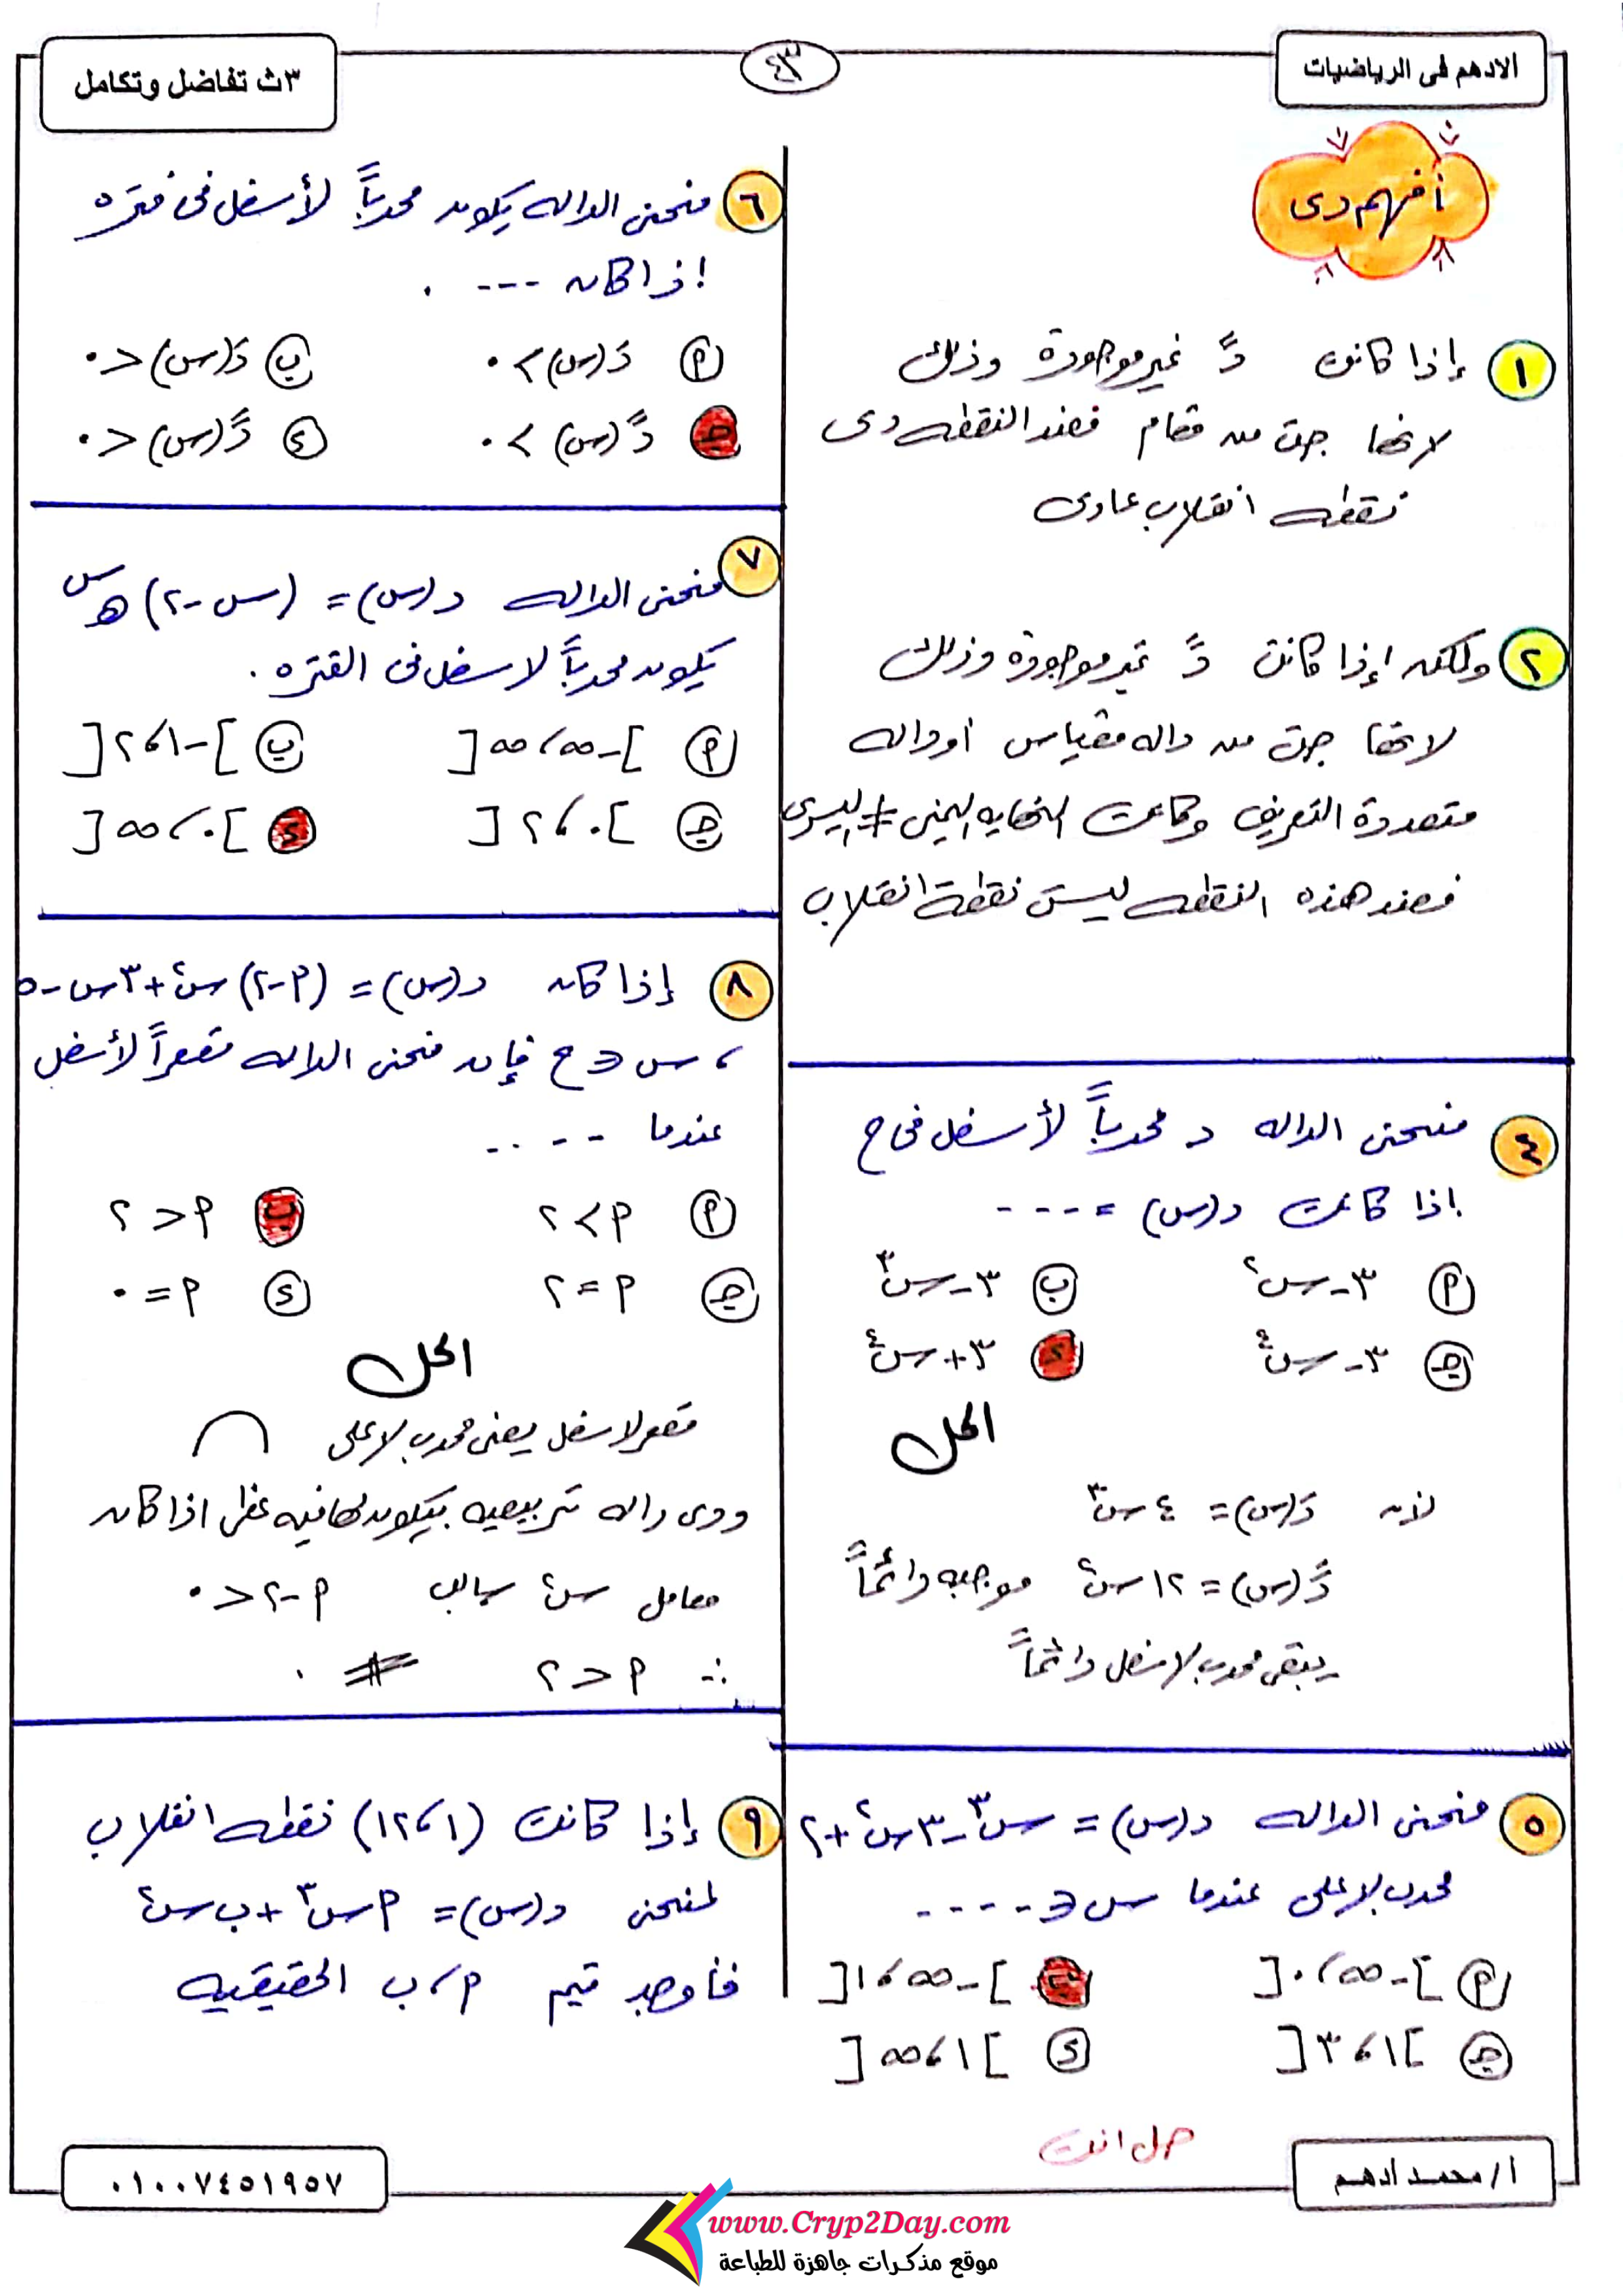 الادهم فى الرياضيات
٤٣
٣ث تفاضل وتكامل
أفهم دى
١ إذا كانت دً غير موجودة وذلك
لانها جت من مقام فعند النقطه دى
نقطه انقلاب عادى
٢ ولكن إذا كانت دً غير موجودة وذلك
لانها جت من داله مقياس او داله
متعددة التعريف وكانت النهايه اليمنى ≠ اليسرى
فعند هذه النقطه ليست نقطة انقلاب
٤ منحنى الداله د محدباً لأسفل فى ح
اذا كانت د(س) = ----
أ ٣ - س٢
ب ٣ - س٣
جـ ٣ - س٤
د ٣ + س٤
الحل
لان دَ(س) = ٤ س٣
دً(س) = ١٢ س٢ موجبه دائماً
يبقى محدب لاسفل دائماً
٥ منحنى الداله د(س) = س٣ - ٣س٢ + ٢
محدب لاعلى عندما س ∈ -----
أ ]-∞، ٠[
ب ]-∞، ١[
جـ ]١، ٣[
د ]١، ∞[
حل انت
٦ منحنى الداله يكون محدباً لأسفل فى فتره
اذا كان ---- .
أ دَ(س) > ٠
ب دَ(س) < ٠
جـ دً(س) > ٠
د دً(س) < ٠
٧ منحنى الداله د(س) = (س - ٢) هـ^س
يكون محدباً لاسفل فى الفتره .
أ ]-∞، ∞[
ب ]-١، ٢[
جـ ]٠، ٢[
د ]٠، ∞[
٨ إذا كان د(س) = (أ - ٢) س٢ + ٣س - ٥
، س ∈ ح فإن منحنى الداله مقعراً لأسفل
عندما ----
أ أ > ٢
ب أ < ٢
جـ أ = ٢
د أ = ٠
الحل
مقعر لاسفل يعنى محدب لاعلى
ودى داله تربيعيه بيكون لها قيه عظمى اذا كان
معامل س٢ سالب أ - ٢ < ٠
∴ أ < ٢ #
٩ إذا كانت (١، ١٢) نقطه انقلاب
لمنحنى د(س) = أ س٣ + ب س٢
فأوجد قيم أ، ب الحقيقيه
أ/ محمد أدهم
٠١٠٠٧٤٥١٩٥٧
www.Cryp2Day.com
موقع مذكرات جاهزة للطباعة